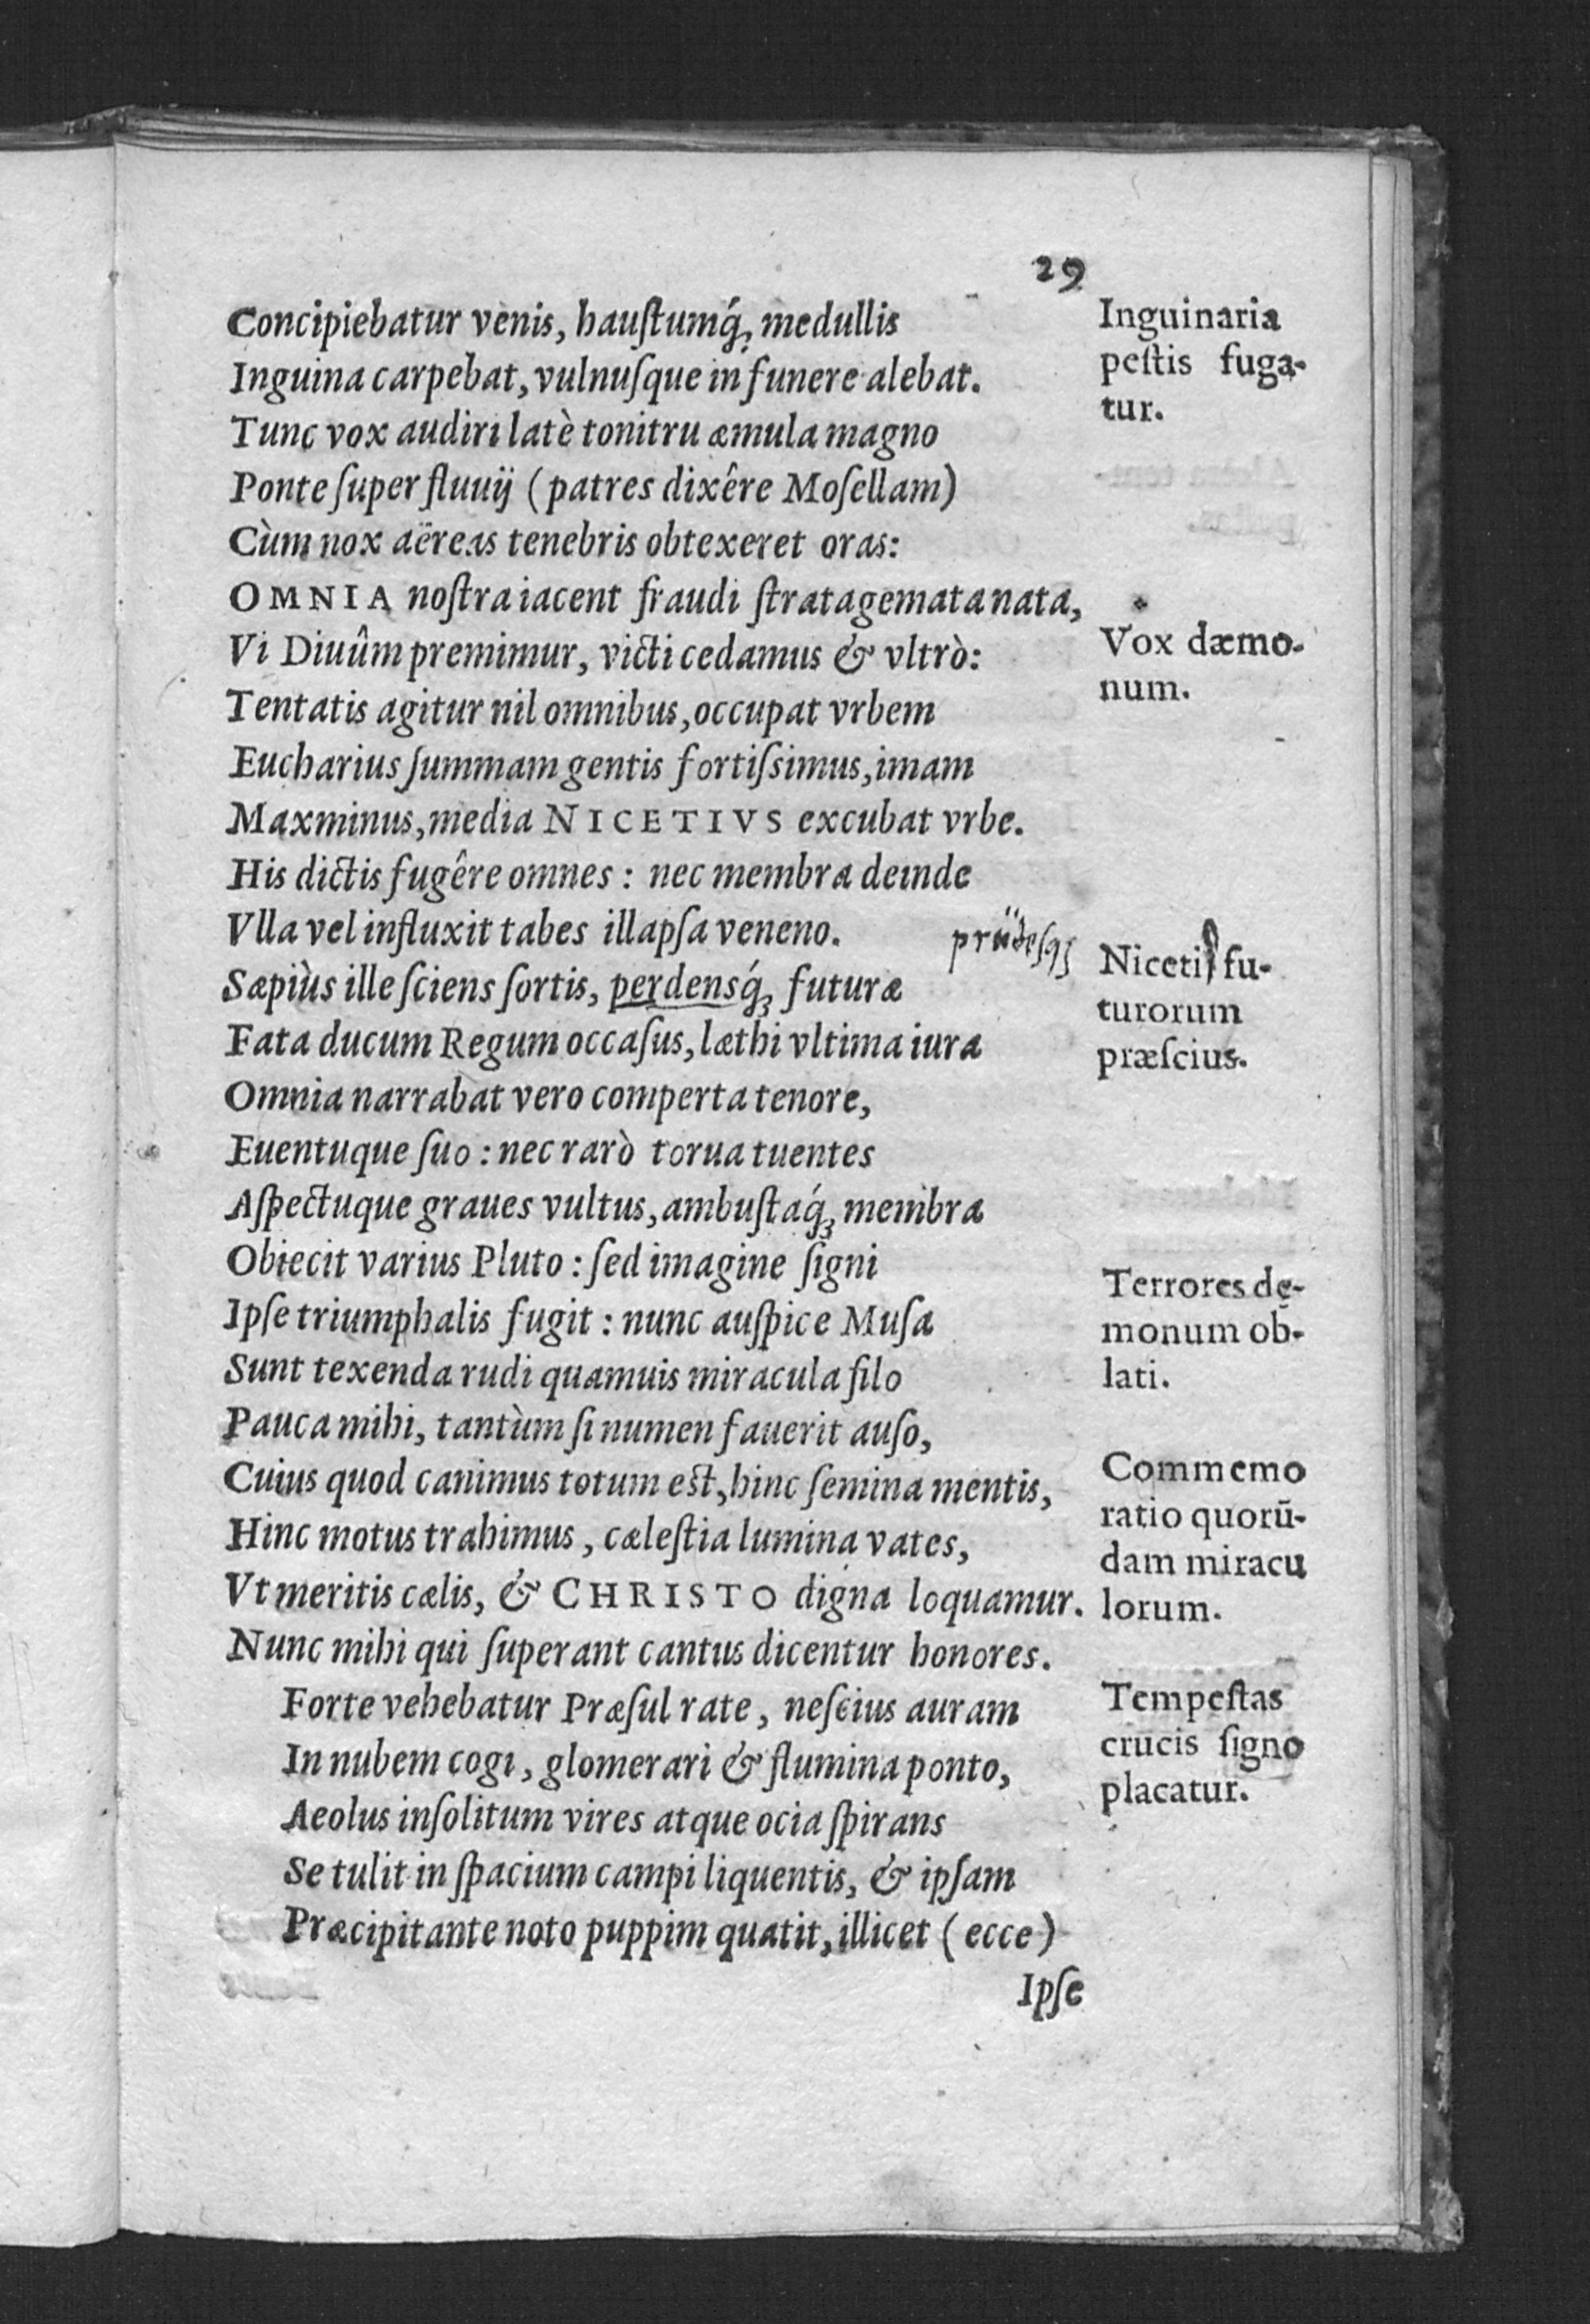 29
Concipiebatur venis, hauſtumq́; medullis
Inguina carpebat, vulnuſque in funere alebat.
Tunc vox audiri latè tonitru æmula magno
Ponte ſuper fluuij (patres dixêre Moſellam)
Cùm nox aëreas tenebris obtexeret oras:
OMNIA noſtra iacent fraudi ſtratagemata nata,
Vi Diuûm premimur, victi cedamus & vltrò:
Tentatis agitur nil omnibus, occupat vrbem
Eucharius ſummam gentis fortiſsimus, imam
Maxminus, media NICETIVS excubat vrbe.
His dictis fugêre omnes : nec membra deinde
Vlla vel influxit tabes illapſa veneno.
Sæpiùs ille ſciens ſortis, perdensq́; futuræ
Fata ducum Regum occaſus, læthi vltima iura
Omnia narrabat vero comperta tenore,
Euentuque ſuo : nec rarò torua tuentes
Aſpectuque graues vultus, ambuſtaq́; membra
Obiecit varius Pluto : ſed imagine ſigni
Ipſe triumphalis fugit : nunc auſpice Muſa
Sunt texenda rudi quamuis miracula filo
Pauca mihi, tantùm ſi numen fauerit auſo,
Cuius quod canimus totum eſt, hinc ſemina mentis,
Hinc motus trahimus, cæleſtia lumina vates,
Vt meritis cælis, & CHRISTO digna loquamur.
Nunc mihi qui ſuperant cantus dicentur honores.
Forte vehebatur Præſul rate, neſcius auram
In nubem cogi, glomerari & flumina ponto,
Aeolus inſolitum vires atque ocia ſpirans
Se tulit in ſpacium campi liquentis, & ipſam
Præcipitante noto puppim quatit, illicet (ecce)
Ipſe
Inguinaria
peſtis fuga-
tur.
Vox dæmo-
num.
fu-
turorum
præſcius.
Terrores dę-
monum ob-
lati.
Commemo
ratio quorū-
dam miracu
lorum.
Tempeſtas
crucis ſigno
placatur.